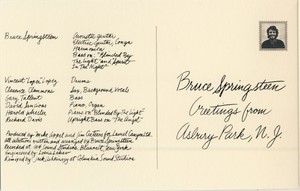 Bruce Springsteen
Acoustic Guitar,
Electric Guitar, Conga
Harmonica
Bass on "Blinded By
The Light" and "Spirit
In The Night"
Vincent Lopez Drums
Clarence Clemons Sax, Background Vocals
Gary Tallent Bass
David Sancious Piano, Organ
Harold Wheeler Piano on "Blinded By The Light"
Richard Davis Upright Bass on "The Angel"
Produced by Mike Appel and Jim Cretecos for Laurel Canyon Ltd.
All selections written and arranged by Bruce Springsteen
Recorded at 914 Sound Studios, Blauvelt, New York
Engineered by Louis Lahav
Remixed by Jack Ashkinazy at Columbia Sound Studios
Bruce Springsteen
Greetings from
Asbury Park, N.J.